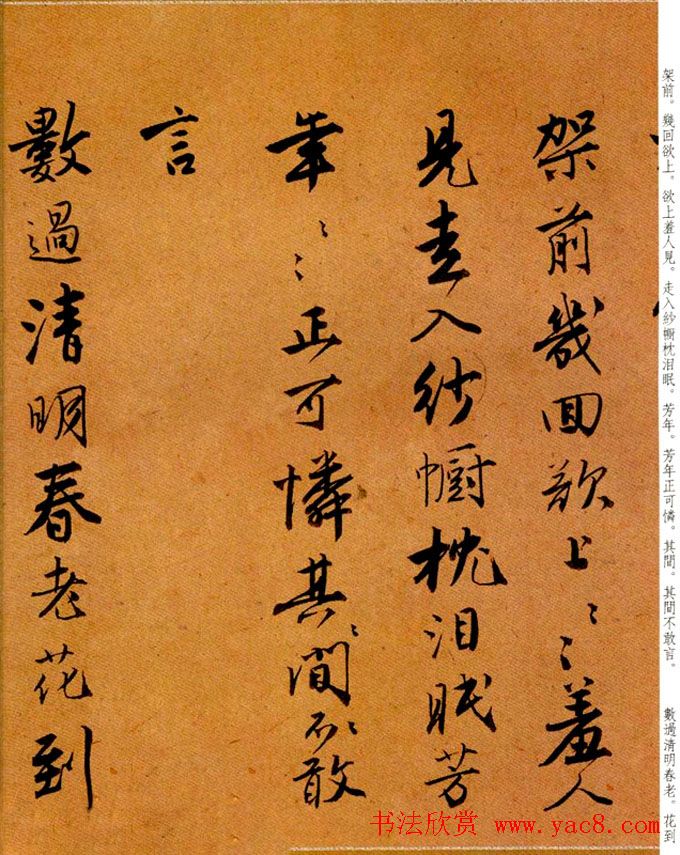 架前。幾回欲上。欲上羞人見。走入紗幮枕泪眠。芳年。芳年正可憐。其間。其間不敢言。 數過清明春老。花到
架前幾回欲上〻〻羞人
見走入紗幮枕泪眠芳
年〻〻正可憐其〻間〻不敢
言
數過清明春老花到
书法欣赏 www.yac8.com